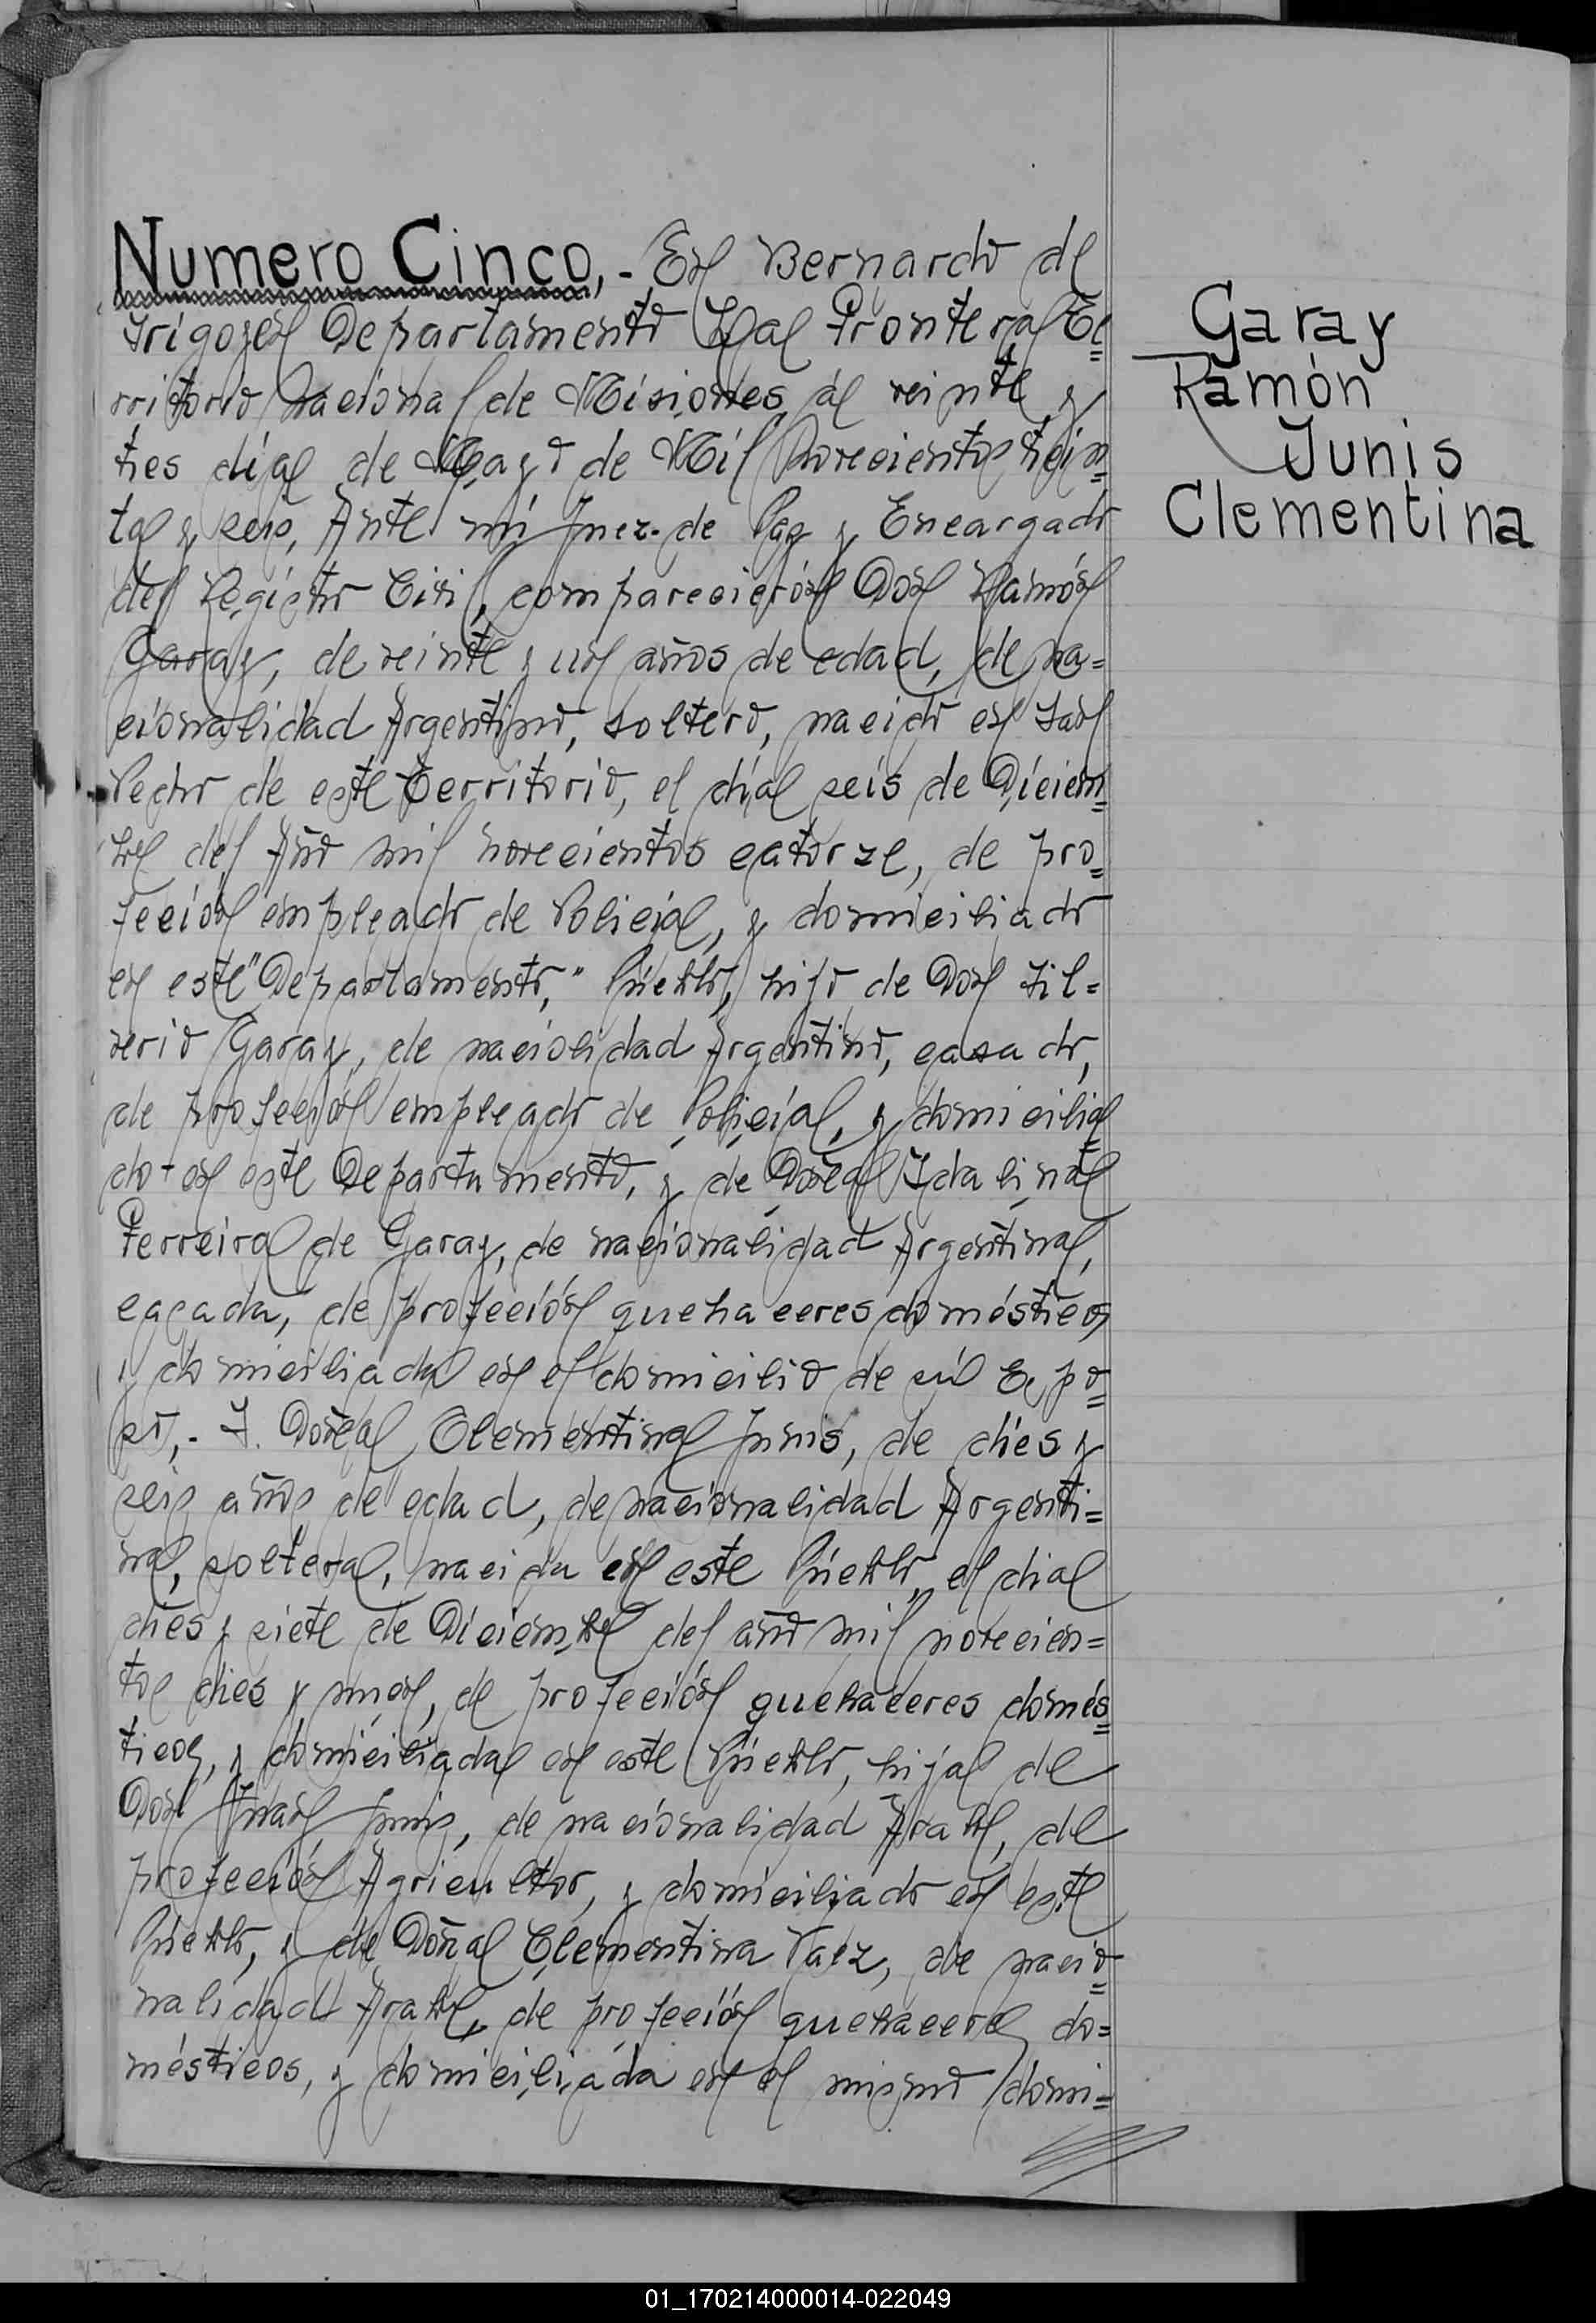 Numero Cinco,.- En Bernardo de
Irigoyen Departamento Frontera Te=
rritorio Nacional de Misiones á veinte y
tres día de Mayo de Mil Novecientos trein=
ta y seis, Ante mí Juez de Paz y Encargado
del Registro Civil, comparecierón Don Ramón
Garay, de veinte y un años de edad, de na=
cionalidad Argentino, soltero, nacido en San
Pedro de este territorio, el día seis de Diciem=
bre del Año mil novecientos catorze, de pro=
feción empleado de Policia, y domiciliado
en este "Departamento," Pueblo, hijo de Don Sil=
verio Garay, de naciolidad Argentino, casado,
de profeción empleado de Policía, y domicilia=
do en este Departamento, y de Doña Idalina
Ferreira de Garay, de nacionalidad Argentina,
casada, de profeción quehaceres domésticos
y domiciliada en el domicilio de su Espo=
so,.- Y. Doña Clementina Junis, de dies y
seis años de edad, de nacionalidad Argenti=
na, soltera, nacida en este Pueblo, el dia
dies y siete de Diciembre del año mil novecien=
tos dies y nueve, de profeción quehaceres domés=
ticos, y domiciliada en este Pueblo, hija de
Don Juan Junis, de nacionalidad Arabe, de
profeción Agricultor, y domiciliado en este
Pueblo, y de Doña Clementina Vaez, de nacio=
nalidad Arabe, de profeción quehacere do=
mésticos, y domiciliada en el mismo domi=
Garay
Ramón
Junis
Clementina
01_170214000014-022049